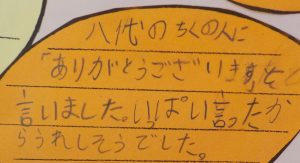 八代のちくのんに
「ありがとうございますと
言いました。いっぱい言ったか
らうれしそうでした。